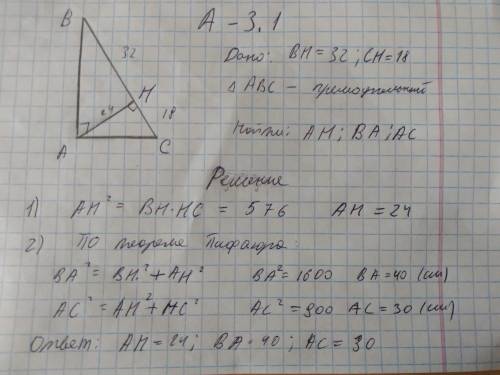 А - 3.1
B
32
H
24
18
A
C
Дано: BH = 32 ; CH = 18
Δ ABC - прямоугольный
Найти: AH ; BA ; AC
Решение
1) AH² = BH·HC = 576 AH = 24
2) ПО теореме Пифагора:
BA² = BH² + AH² BA² = 1600 BA = 40 (см)
AC² = AH² + HC² AC² = 900 AC = 30 (см)
Ответ: AH = 24 ; BA = 40 ; AC = 30